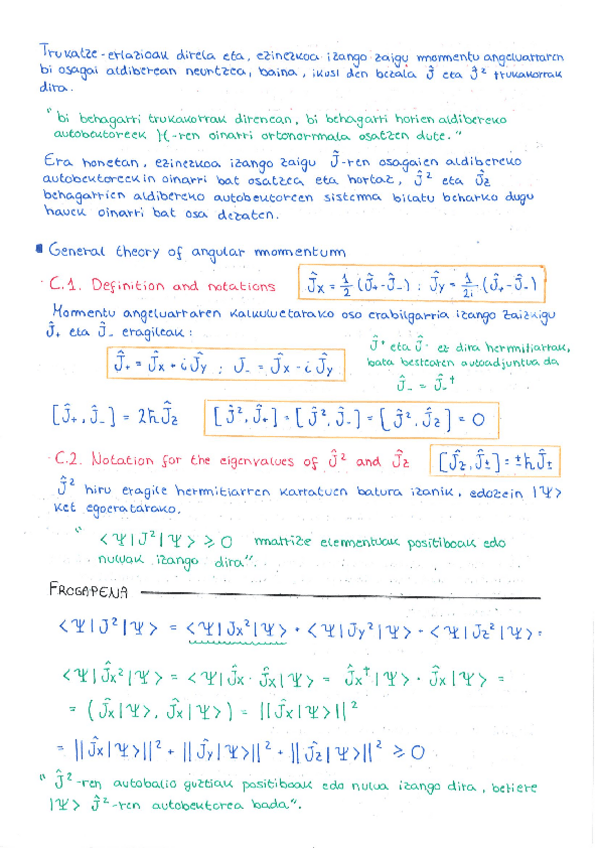 Trukatze-erlazioak direla eta, ezinezkoa izango zaigu momentu angeluarraren
bi osagai aldiberean neurtzea, baina, ikusi den bezala Ĵ eta Ĵ² trukakorrak
dira.
"bi behagarri trukakorrak direnean, bi behagarri horien aldibereko
autobektoreek H-ren oinarri ortonormala osatzen dute."
Era honetan, ezinezkoa izango zaigu Ĵ-ren osagaien aldibereko
autobektoreekin oinarri bat osatzea eta hortaz, Ĵ² eta Ĵz
behagarrien aldibereko autobektoreen sistema bilatu beharko dugu
hauek oinarri bat osa dezaten.
General theory of angular momentum
C.1. Definition and notations Ĵx = 1/2 (Ĵ+ + Ĵ-) ; Ĵy = 1/2i (Ĵ+ - Ĵ-)
Momentu angeluarraren kalkuluetarako oso erabilgarria izango zaizkigu
Ĵ+ eta Ĵ- eragileak:
Ĵ+ = Ĵx + iĴy ; J- = Ĵx - iĴy
Ĵ+ eta Ĵ- ez dira hermitiarrak,
bata bestearen autoadjuntua da
Ĵ- = Ĵ+†
[Ĵ+, Ĵ-] = 2ħĴz [Ĵ², Ĵ+] = [Ĵ², Ĵ-] = [Ĵ², Ĵz] = 0
C.2. Notation for the eigenvalues of Ĵ² and Ĵz [Ĵz, Ĵ±] = ±ħĴ±
Ĵ² hiru eragile hermitiarren karratuen batura izanik, edozein |Ψ>
ket egoeratarako.
"<Ψ|J²|Ψ> ≥ 0 matrize elementuak positiboak edo
nuluak izango dira".
FROGAPENA
<Ψ|J²|Ψ> = <Ψ|Jx²|Ψ> + <Ψ|Jy²|Ψ> + <Ψ|Jz²|Ψ> =
<Ψ|Ĵx²|Ψ> = <Ψ|Ĵx · Ĵx|Ψ> = Ĵx†|Ψ> · Ĵx|Ψ> =
= (Ĵx|Ψ>, Ĵx|Ψ>) = ||Ĵx|Ψ>||²
= ||Ĵx|Ψ>||² + ||Ĵy|Ψ>||² + ||Ĵz|Ψ>||² ≥ 0
"Ĵ²-ren autobalio guztiak positiboak edo nulua izango dira, betiere
|Ψ> Ĵ²-ren autobektorea bada".